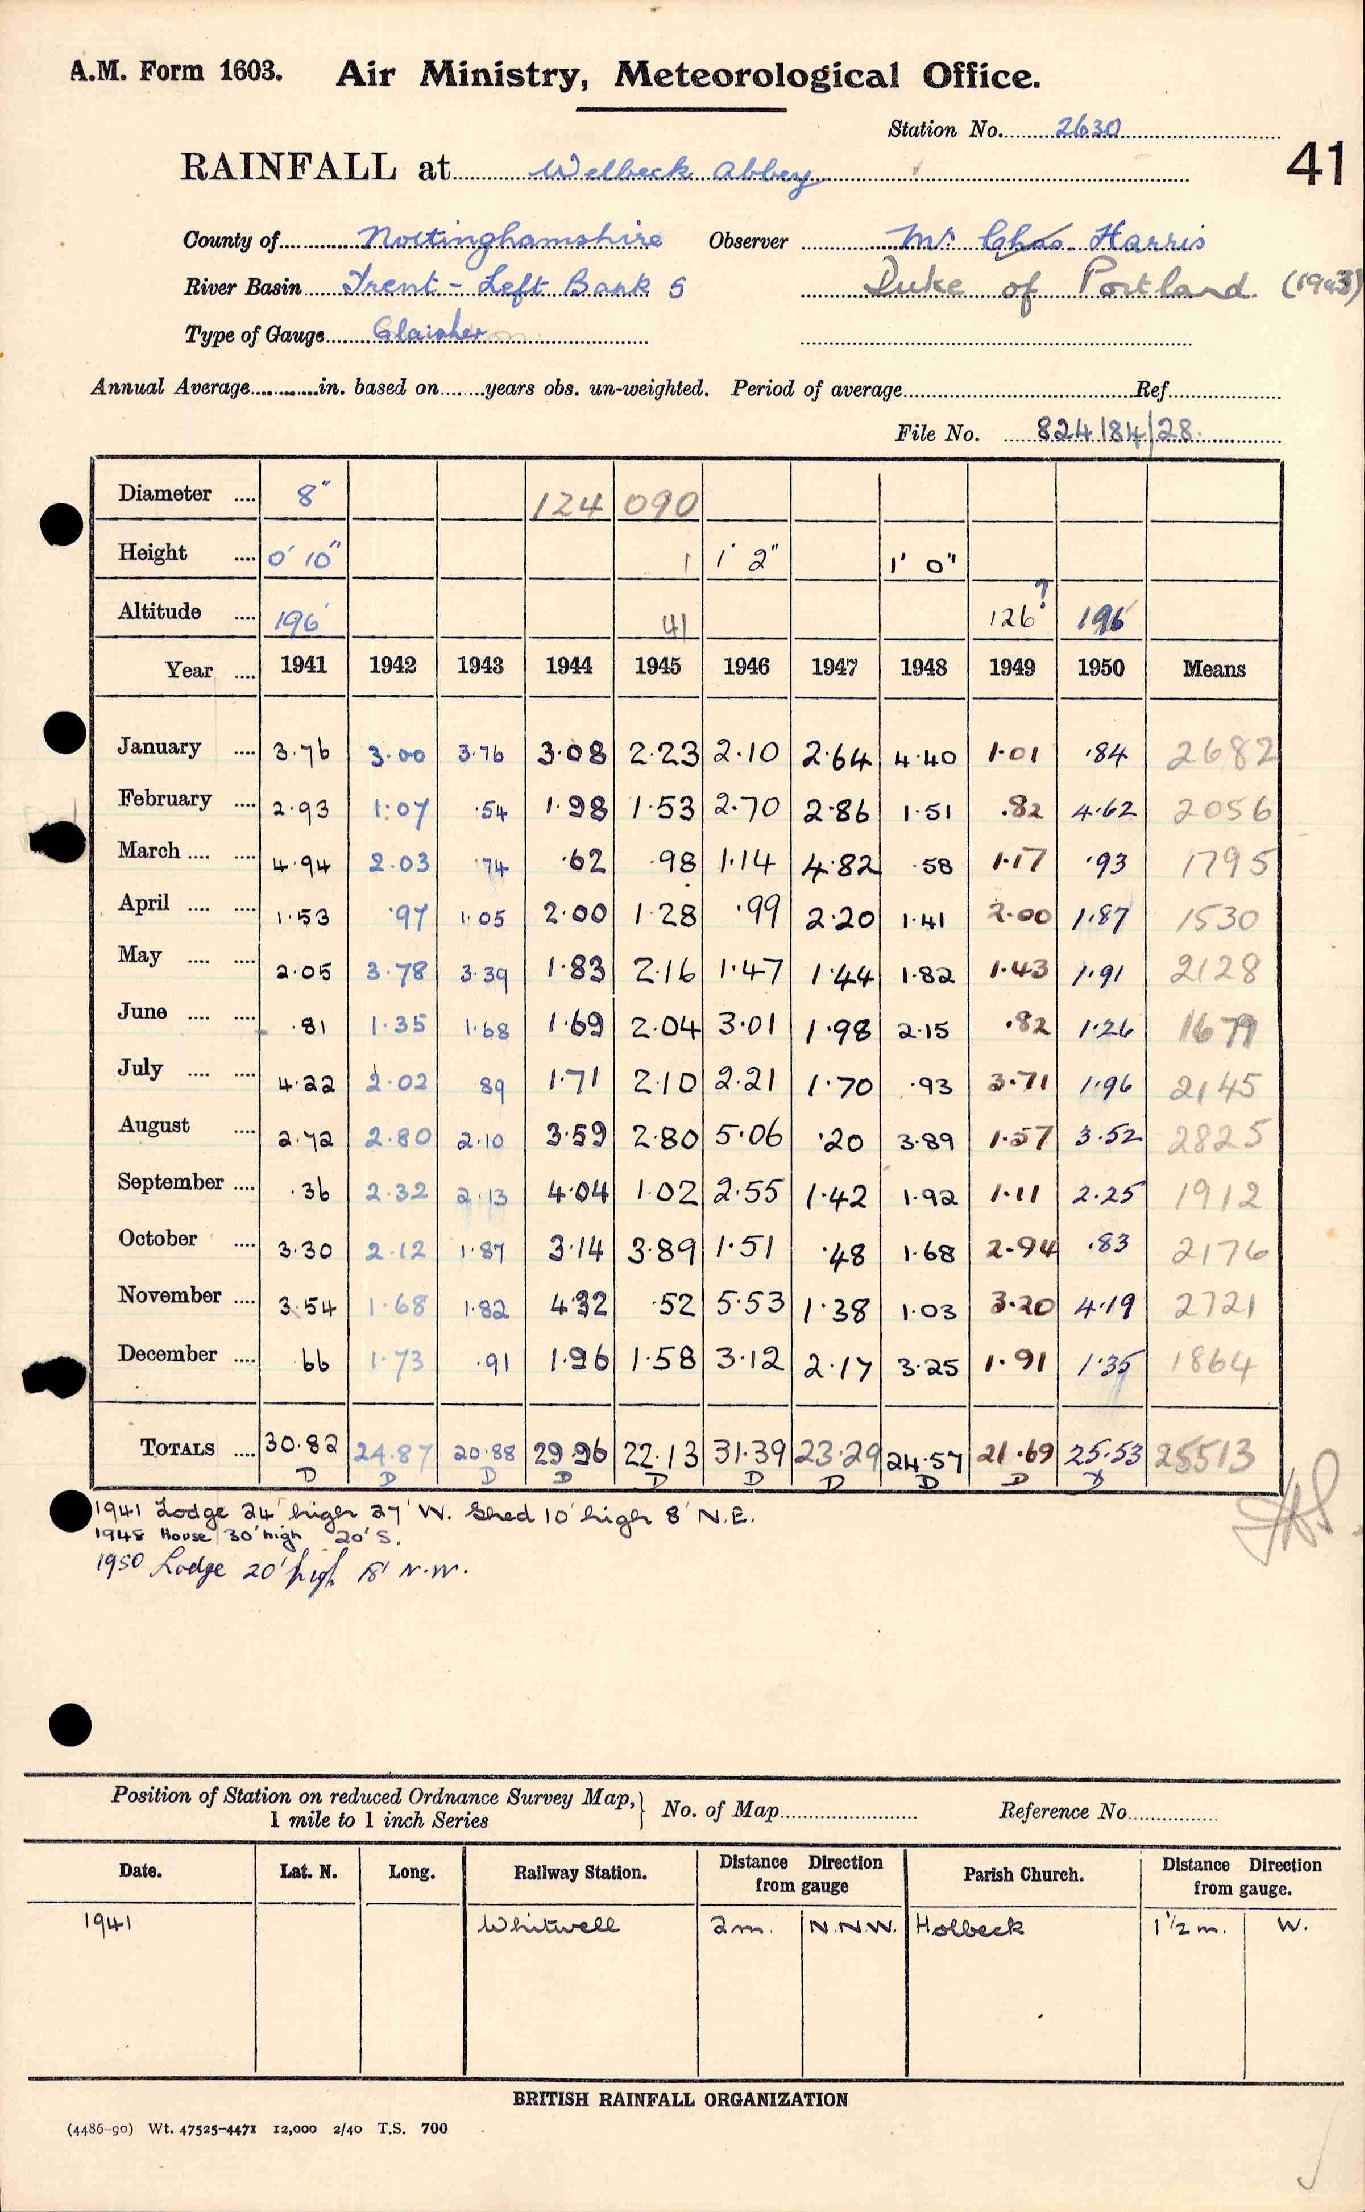 A.M. Form 1603. Air Ministry, Meteorological Office.
Station No. 2630
41
RAINFALL at Welbeck Abbey
County of Nottinghamshire Observer Mr Chas. Harris
River Basin Trent - Left Bank 5 Duke of Portland (1943)
Type of Gauge Glaisher
Annual Average in. based on years obs. un-weighted. Period of average Ref
File No. 824184/28
Diameter 8" 124 090
Height 0' 10" 1 1' 2" 1' 0"
Altitude 196' 41 126? 196'
Year 1941 1942 1943 1944 1945 1946 1947 1948 1949 1950 Means
January 3.76 3.00 3.76 3.08 2.23 2.10 2.64 4.40 1.01 .84 2682
February 2.93 1.07 .54 1.98 1.53 2.70 2.86 1.51 .82 4.62 2056
March 4.94 2.03 .74 .62 .98 1.14 4.82 .58 1.17 .93 1795
April 1.53 .97 1.05 2.00 1.28 .99 2.20 1.41 2.00 1.87 1530
May 2.05 3.78 3.39 1.83 2.16 1.47 1.44 1.82 1.43 1.91 2128
June .81 1.35 1.68 1.69 2.04 3.01 1.98 2.15 .82 1.26 1679
July 4.22 2.02 .89 1.71 2.10 2.21 1.70 .93 3.71 1.96 2145
August 2.72 2.80 2.10 3.59 2.80 5.06 .20 3.89 1.57 3.52 2825
September .36 2.32 2.13 4.04 1.02 2.55 1.42 1.92 1.11 2.25 1912
October 3.30 2.12 1.87 3.14 3.89 1.51 .48 1.68 2.94 .83 2176
November 3.54 1.68 1.82 4.32 .52 5.53 1.38 1.03 3.20 4.19 2721
December .66 1.73 .91 1.96 1.58 3.12 2.17 3.25 1.91 1.35 1864
TOTALS 30.82 24.87 20.88 29.96 22.13 31.39 23.29 24.57 21.69 25.53 25513
D D D D D D D D D D
1941 Lodge 24' high 27' W. Shed 10' high 8' N.E.
1948 House 30' high 20' S.
1950 Lodge 20' high 18' N.W.
Position of Station on reduced Ordnance Survey Map,
1 mile to 1 inch Series
No. of Map Reference No.
Date. Lat. N. Long. Railway Station. Distance Direction from gauge Parish Church. Distance Direction from gauge.
1941 Whitwell 2m. N.N.W. Holbeck 1 1/2 m. W.
BRITISH RAINFALL ORGANIZATION
(4486-90) Wt. 47525-4471 12,000 2/40 T.S. 700